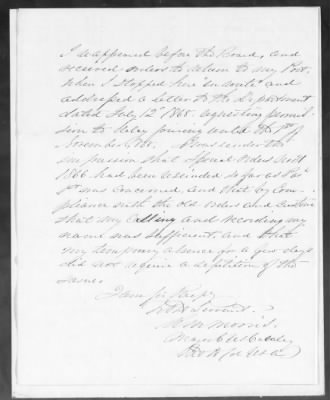 I reappeared before the Board, and
received orders to return to my Post.
When I stopped here "en route" and
addressed a letter to the Department
dated July 12" 1865. requesting permis-
sion to delay joining until the 1st of
November,
impression that Special Orders
1866 had been rescinded so far as
was concerned, and that by Com-
pliance with the old orders and custom
that my calling and recording my
name was sufficient, and that
my temporary absence for a few days
did not require a repetition of the
same.
I am Sir Resp'y
Servant.
Morris.
Major 6 US Cavalry
Col